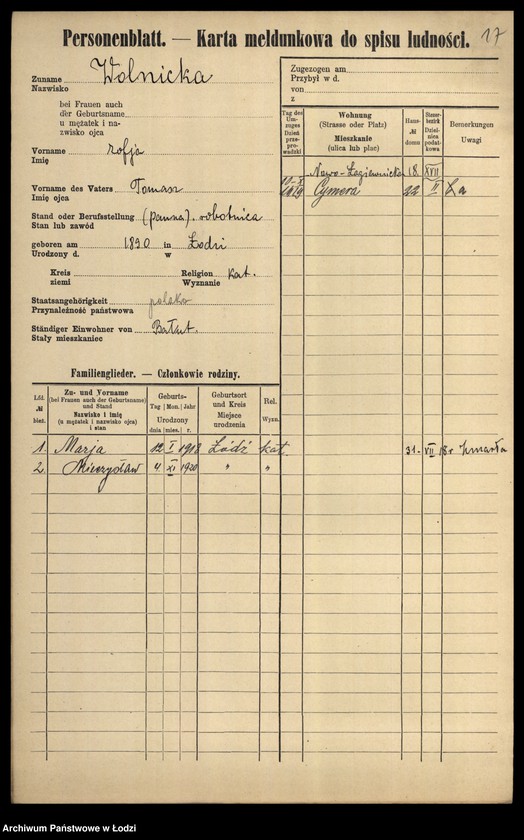 Personenblatt. — Karta meldunkowa do spisu ludności.
17
Zuname Wolnicka
Nazwisko
bei Frauen auch
der Geburtsname
u mężatek i na-
zwisko ojca
Vorname Zofja
Imię
Vorname des Vaters Tomasz
Imię ojca
Stand oder Berufsstellung (panna). robotnica
Stan lub zawód
geboren am 1890 in Łodzi
Urodzony d. w
Kreis Religion kat.
ziemi Wyznanie
Staatsangehörigkeit polska
Przynależność państwowa
Ständiger Einwohner von Bałut.
Stały mieszkaniec
Zugezogen am
Przybył w d.
von
z
Tag des Um-zuges Dzień prze-prowadzki
Wohnung
(Strasse oder Platz)
Mieszkanie
(ulica lub plac)
Haus-
№
domu
Steuer-bezirk Dziel-nica podat-kowa
Bemerkungen
Uwagi
Nowo-Łagiewnicka 18. XVII
1919 Cymera 22 II
Familienglieder. — Członkowie rodziny.
Lfd.
№
bież.
Zu- und Vorname
(bei Frauen auch der Geburtsname)
und Stand
Nazwisko i imię
(u mężatek i nazwisko ojca)
i stan
Geburts-
Tag | Mon. | Jahr
Urodzony
dnia | mies. | r.
Geburtsort
und Kreis
Miejsce
urodzenia
Rel.
Wyzn.
1. Marja 12 I 1918 Łódź kat. 31. VII 18 r zmarła
2. Mieczysław 4 XI 1920 " "
Archiwum Państwowe w Łodzi